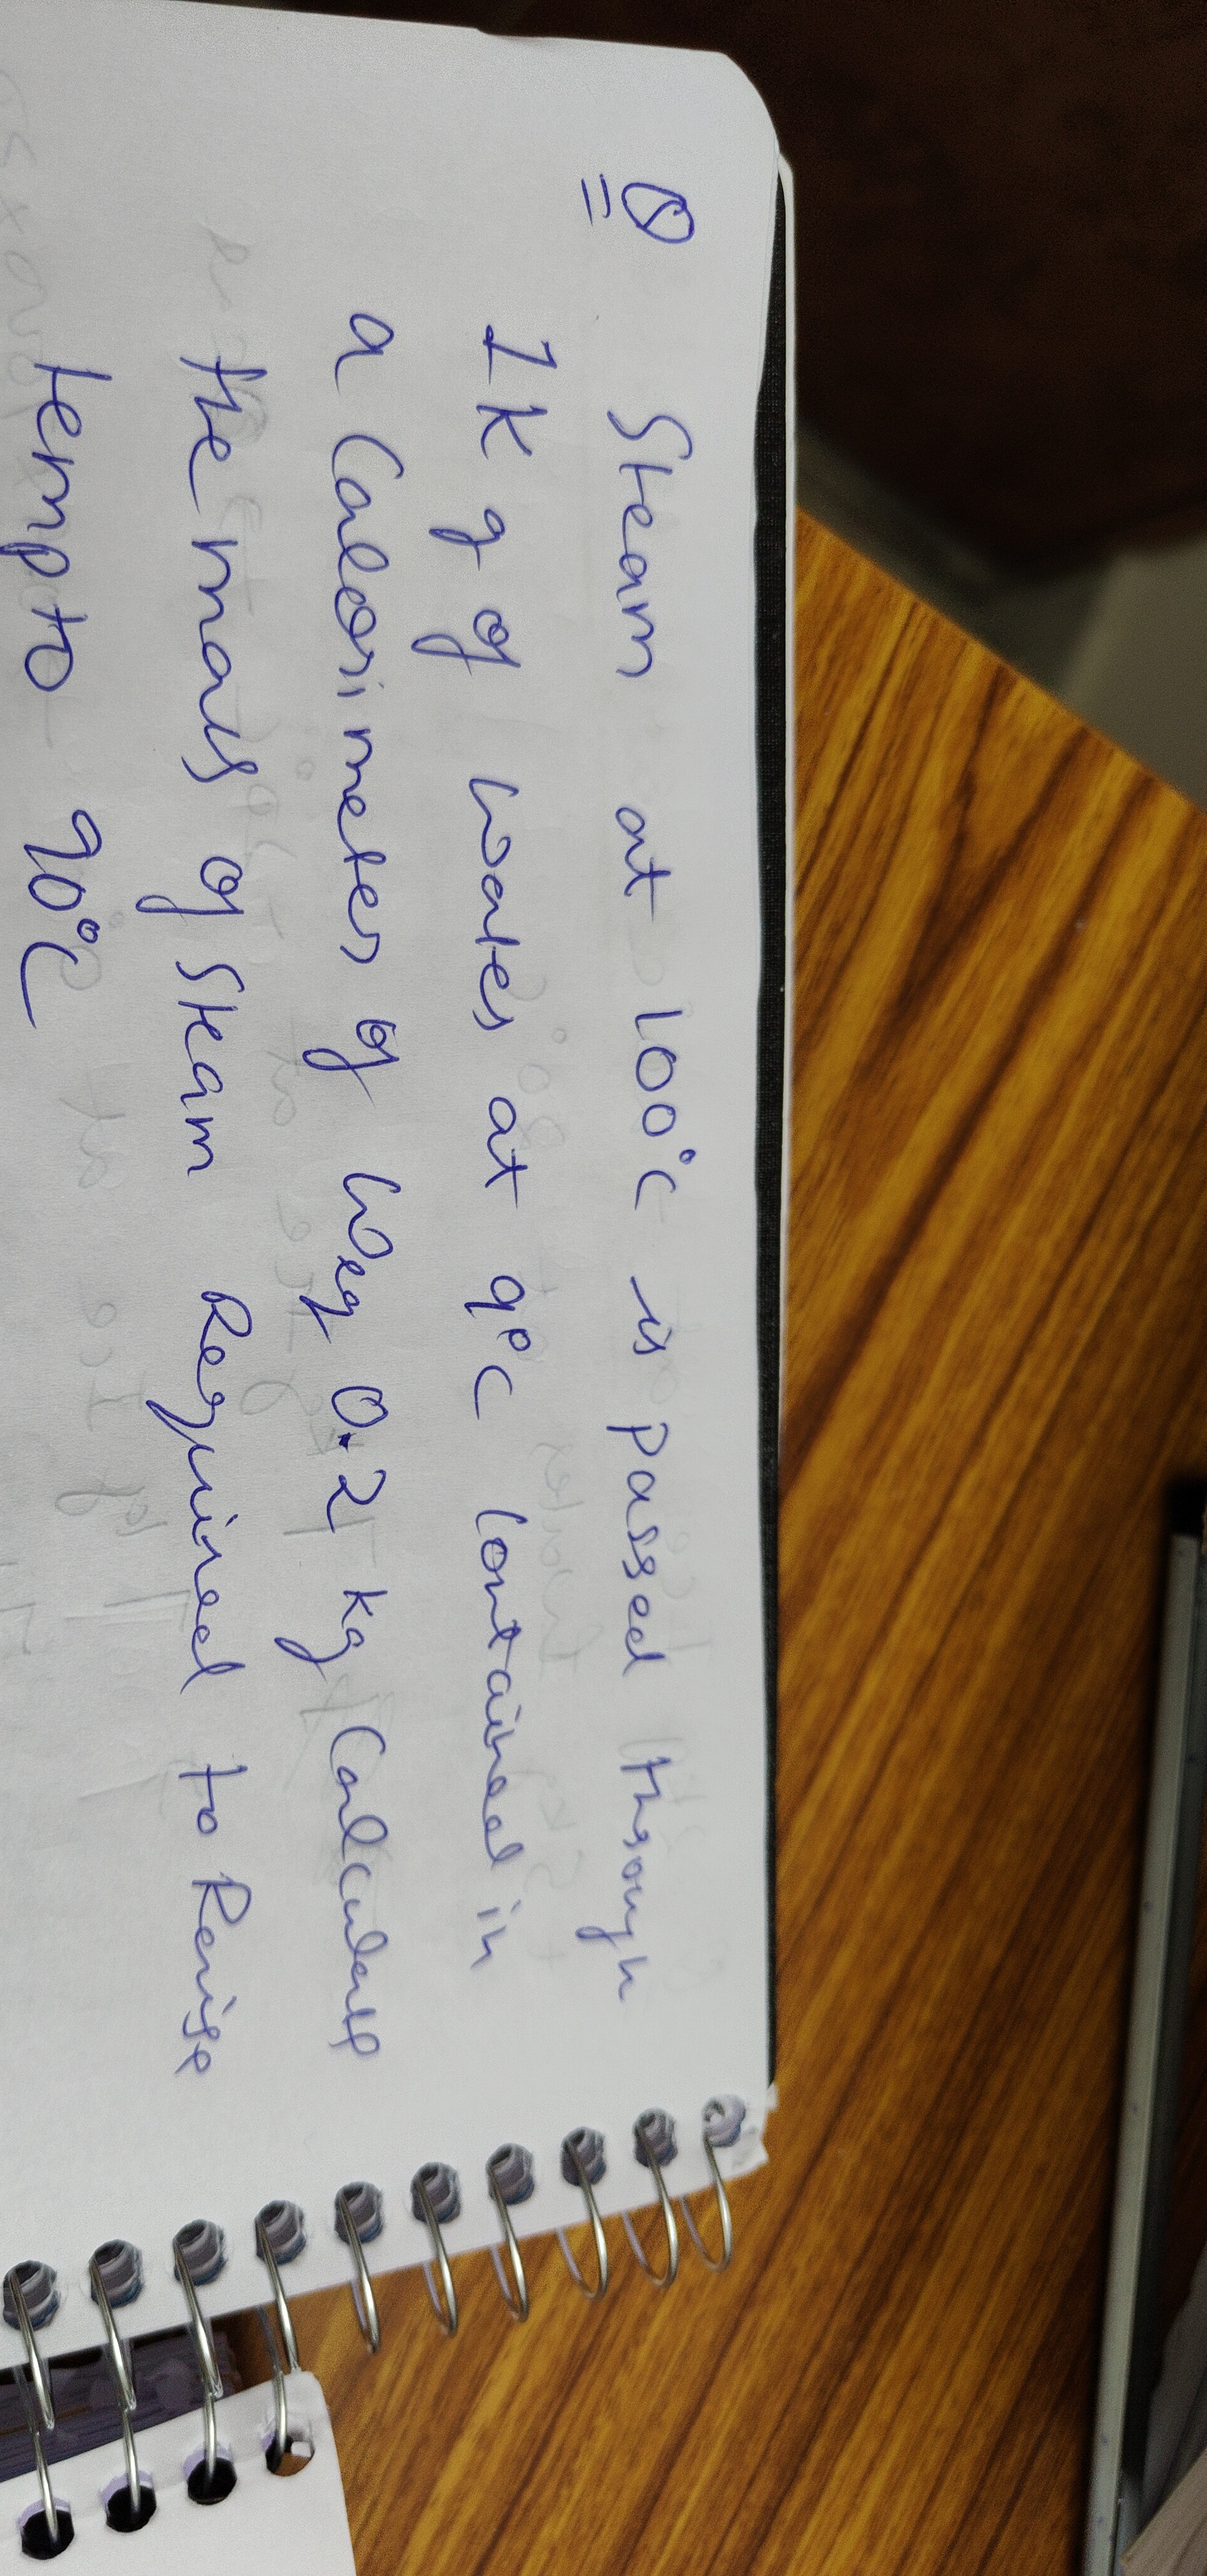 Q Steam at 100°C is passed through
1 Kg of water at 9°C contained in
a Calorimeter of Weq 0.2 kg Calculate
the mass of Steam Required to Raise
temp to 90°C